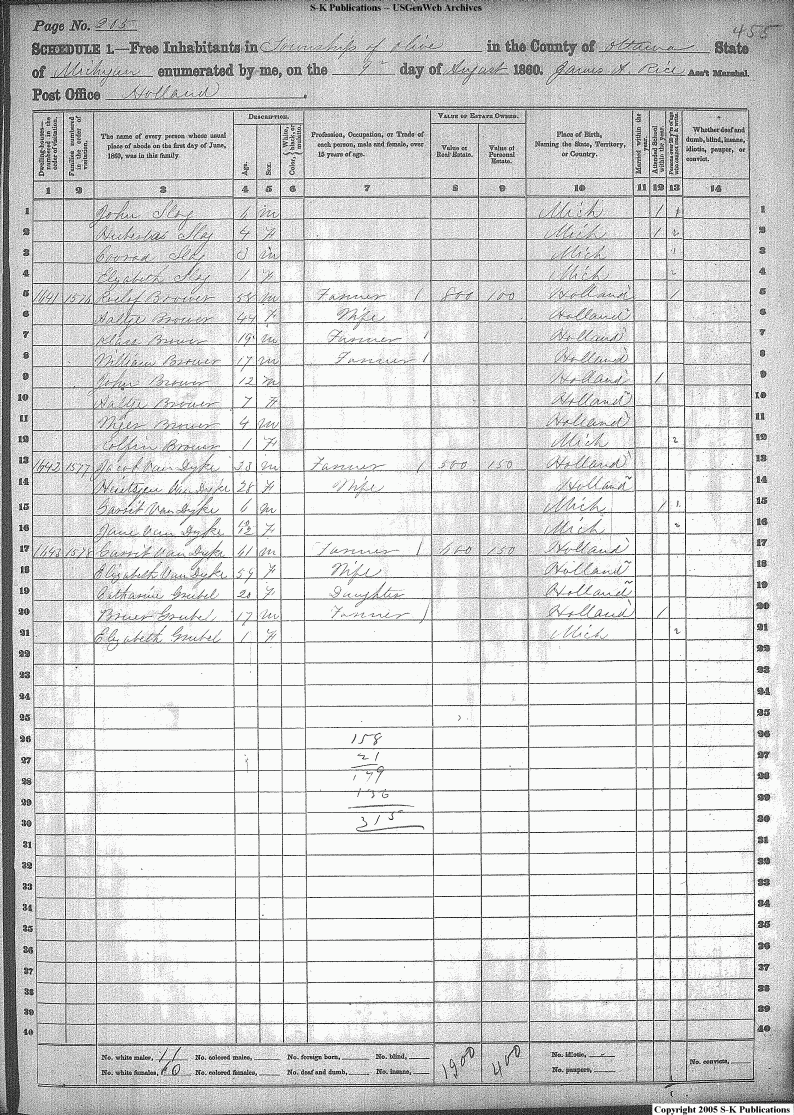 S-K Publications -- USGenWeb Archives
Page No. 205
455
SCHEDULE 1.—Free Inhabitants in Township of Olive in the County of Ottawa State
of Michigan enumerated by me, on the 9th day of August 1860. James A. Rice Ass't Marshal.
Post Office Holland .
Dwelling-houses— numbered in the order of visitation.
Families numbered in the order of visitation.
The name of every person whose usual place of abode on the first day of June, 1860, was in this family.
DESCRIPTION.
Age.
Sex.
Color, White, black, or mulatto.
Profession, Occupation, or Trade of each person, male and female, over 15 years of age.
VALUE OF ESTATE OWNED.
Value of Real Estate.
Value of Personal Estate.
Place of Birth, Naming the State, Territory, or Country.
Married within the year.
Attended School within the year.
Whether deaf and dumb, blind, insane, idiotic, pauper, or convict.
1 2 3 4 5 6 7 8 9 10 11 12 13 14
1 John Slag 6 m Mich 1 1 1
2 Slag 4 f Mich 1 2 2
3 Conrad Slag 3 m Mich 1 3
4 Elizabeth Slag 1 f Mich 2 4
5 1641 1576 Roelof Brower 58 m Farmer 1 800 100 Holland 1 5
6 Aaltje Brower 44 f Wife Holland 6
7 Klaas Brower 19 m Farmer 1 Holland 7
8 William Brower 17 m Farmer 1 Holland 8
9 John Brower 12 m Holland 1 9
10 Brower 7 f Holland 10
11 Brower 4 m Holland 11
12 Brower 1 f Mich 2 12
13 1642 1577 Jacob Van Dyke 33 m Farmer 1 500 150 Holland 13
14 Van Dyke 28 f Wife Holland 14
15 Garrit Van Dyke 6 m Mich 1 1 15
16 Jane Van Dyke f Mich 2 16
17 1643 1578 Garrit Van Dyke 61 m Farmer 1 600 150 Holland 17
18 Elizabeth Van Dyke 59 f Wife Holland 18
19 Catharine Grubel 20 f Daughter Holland 19
20 Grubel 17 m Farmer 1 Holland 1 20
21 Elizabeth Grubel 1 f Mich 2 21
22 22
23 23
24 24
25 25
26 158 26
27 21 27
28 179 28
29 136 29
30 315 30
31 31
32 32
33 33
34 34
35 35
36 36
37 37
38 38
39 39
40 40
No. white males, 11 No. colored males, No. foreign born, No. blind, 1900 400 No. idiotic,
No. white females, 10 No. colored females, No. deaf and dumb, No. insane, No. paupers, No. convicts,
Copyright 2005 S-K Publications